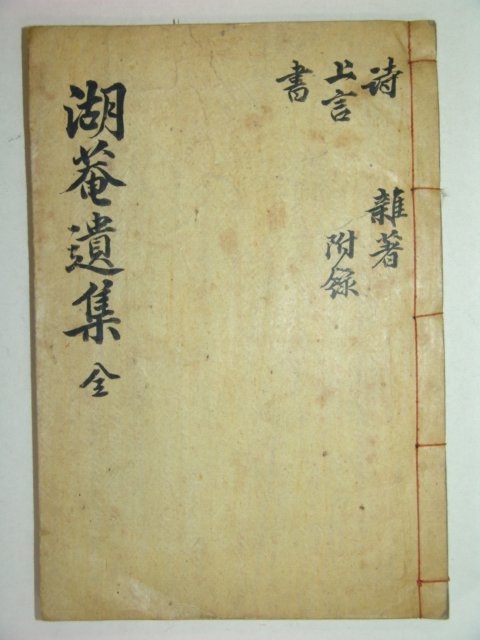 詩　雜著
上言　附錄
書
湖菴遺集 全